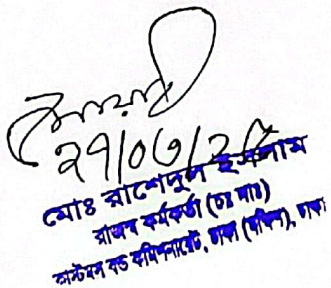 ২৭/০৩/২৫
মোঃ রাশেদুল ইসলাম
রাজস্ব কর্মকর্তা (চঃ দাঃ)
কাস্টমস বন্ড কমিশনারেট, ঢাকা (দক্ষিণ), ঢাকা